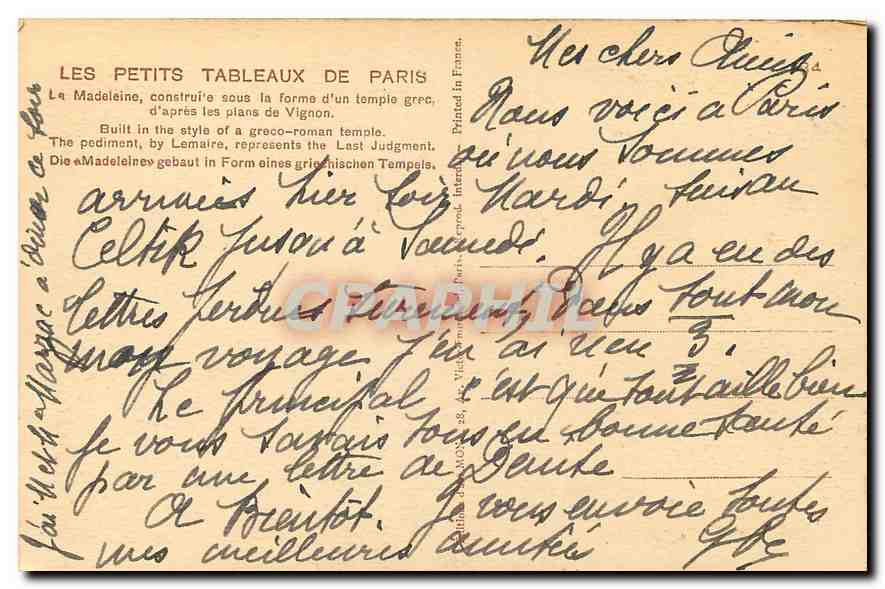 LES PETITS TABLEAUX DE PARIS
La Madeleine, construite sous la forme d'un temple grec,
d'après les plans de Vignon.
Built in the style of a greco-roman temple.
The pediment, by Lemaire, represents the Last Judgment.
Die «Madeleine» gebaut in Form eines griechischen Tempels.
Printed in France.
Reprod. Interdite
Paris
28, Av. Victor
Editions d'Art
Mes chers Amis
Nous voici à Paris
où nous sommes
arrivés hier soir Mardi.
jusqu'à Samedi. Il y a eu des
lettres perdues sûrement, dans tout mon
mon voyage j'en ai reçu 3.
Le principal c'est que tout aille bien
Je vous savais tous en bonne santé
par une lettre de Dante
A Bientôt. Je vous envoie toutes
mes meilleures amitiés
à dîner ce soir
CPAPHIL